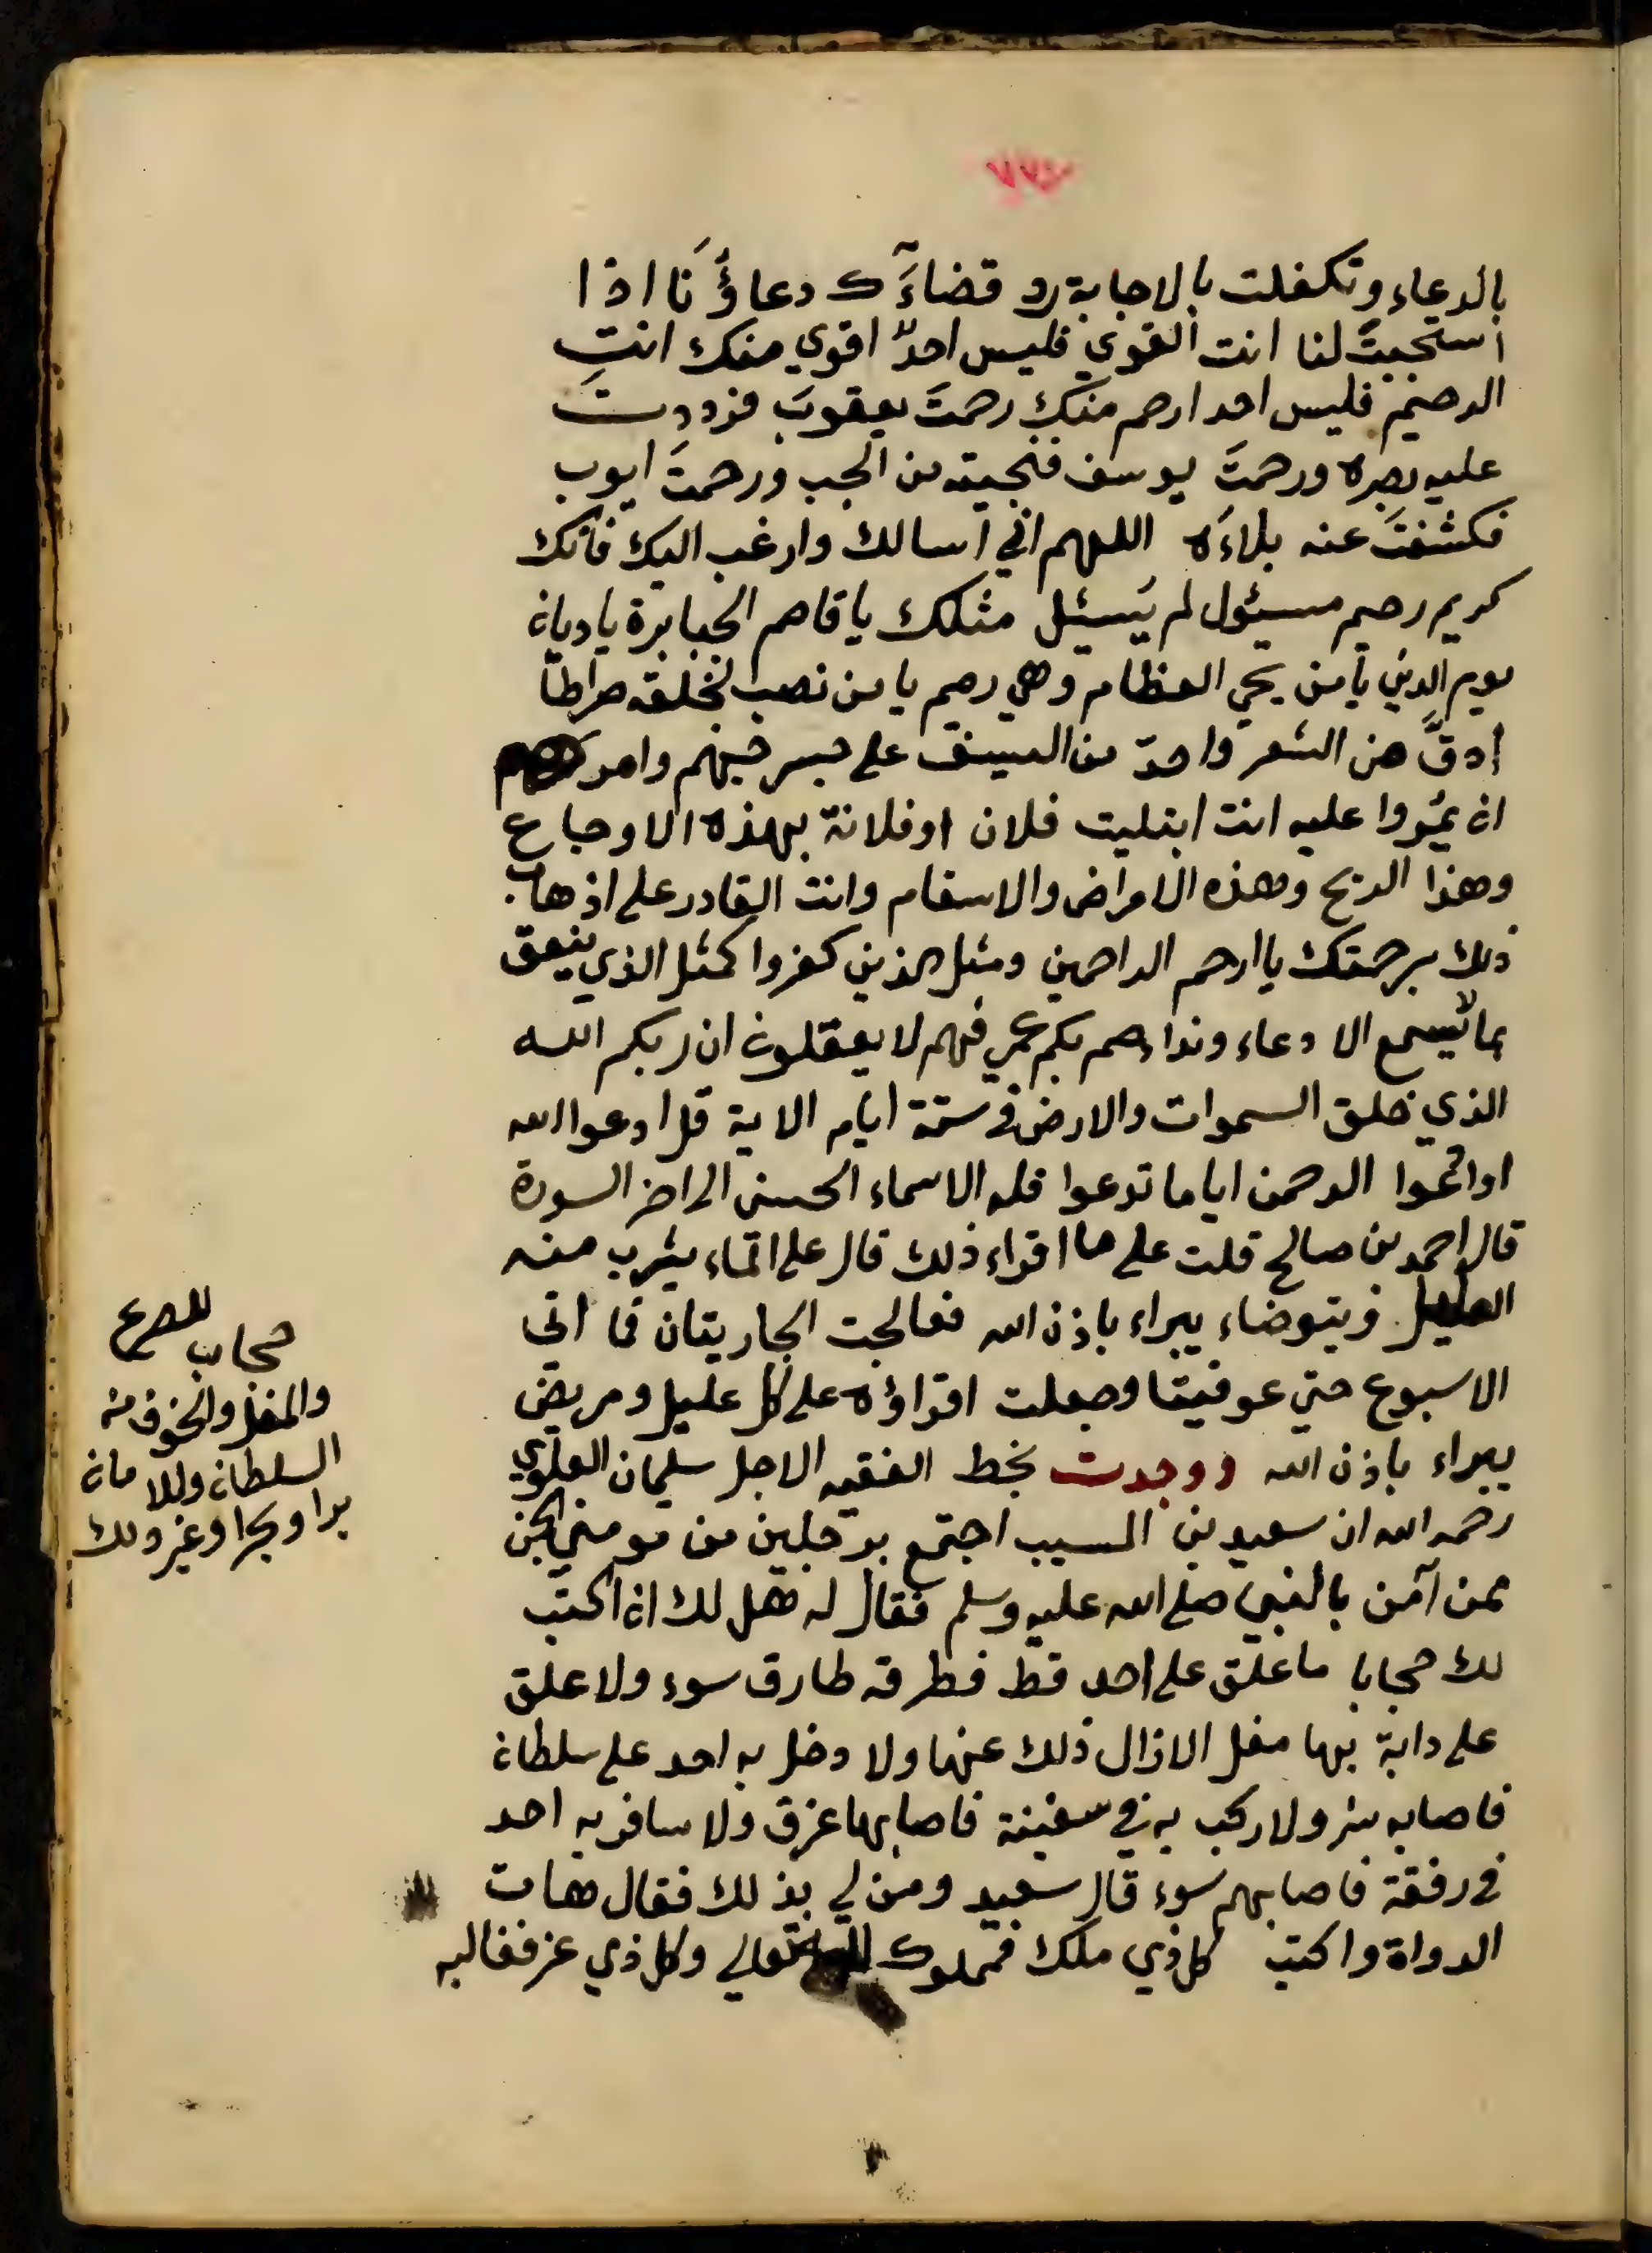 بالدعاء وتكفلت بالاجابة رد قضآءَك دعاؤُنَا اذا
استجبتَ لنا انت القوي فليس احدٌ اقوي منك انت
الرحيم فليس احد ارحم منك رحمتَ يعقوبَ فرددت
عليه بصره ورحمتَ يوسف فنجيته من الجب ورحمتَ ايوب
فكشفتَ عنه بلاءَه اللهم اني اسالك وارغب اليك فانك
كريم رحيم مسئول لم يُسئِل مثلك يا قاصم الجبابرة يا ديان
يوم الدين يا من يحي العظام وهي رميم يا من نصب لخلقه صراطا
ادقَّ من الشعر واحدّ من السيف على جسر جهنم وامرهم
ان يمُروا عليه انت ابتليت فلان او فلانة بهذه الاوجاع
وهذا الريح وهذه الامراض والاسقام وانت القادر على اذهاب
ذلك برحمتك يا ارحم الراحمين ومثل الذين كفروا كمثل الذي ينعق
بما لا يسمع الا دعاء ونداء صم بكم عمي فهم لا يعقلون ان ربكم الله
الذي خلق السموات والارض في ستة ايام الاية قل ادعوا الله
او ادعوا الرحمن اياما تدعوا فله الاسماء الحسنى الى اخر السورة
قال احمد بن صالح قلت على ما اقراء ذلك قال على الماء يشرب منه
العليل ويتوضاء يبراء باذن الله فعالجت الجاريتان فما اتى
الاسبوع حتي عوفيتا وجعلت اقراؤه على كل عليل ومريض
يبراء باذن الله ووجدت بخط الفقيه الاجل سليمان العلوي
رحمه الله ان سعيد بن المسيب اجتمع برجلين من مومني الجن
ممن آمن بالنبي صلى الله عليه وسلم فقال له هل لك ان اكتب
لك حجابا ما علق على احد قط فطرقه طارق سوء ولا علق
على دابة بها مغل الا زال ذلك عنها ولا دخل به احد على سلطان
فاصابه شر ولا ركب به في سفينة فاصابها غرق ولا سافر به احد
في رفقة فاصابهم سوء قال سعيد ومن لي بذلك فقال هات
الدواة واكتب كل ذي ملك فمملوك لله تعالى وكل ذي عز فغالبه
حجاب للصرع
والمغل والخوف من
السلطان وللامان
برا وبحرا وغير ذلك